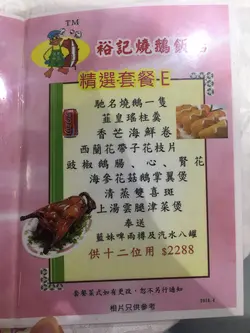 TM
裕記燒鵝飯店
精選套餐-E
馳名燒鵝一隻
韮皇瑤柱羹
香芒海鮮卷
西蘭花帶子花枝片
豉椒鵝腸、心、腎花
海參花菇鵝掌翼煲
清蒸雙喜斑
上湯雲腿津菜煲
奉送
藍妹啤兩樽及汽水八罐
供十二位用 $2288
套餐菜式如有更改，恕不另行通知
相片只供參考